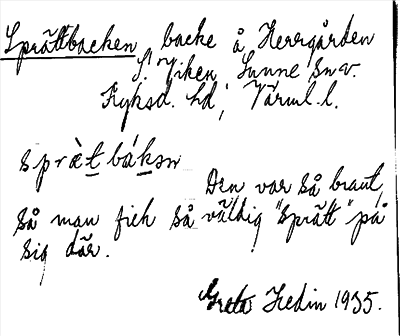 Sprättbacken, backe å Herrgården
S. Viken, Sunne sn v.
Fryksd. hd, Värml. l.
sprätbáksn
Den var så brant,
så man fick så väldig "sprätt" på
sig där.
Greta Hedin 1935.